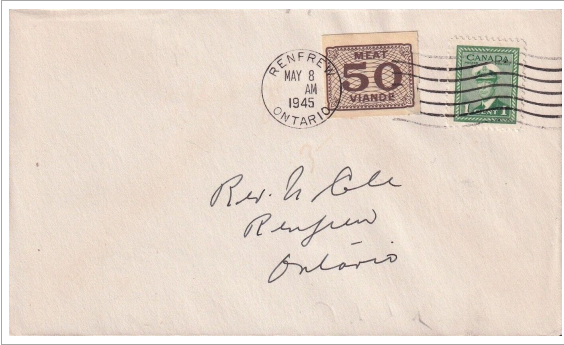 RENFREW
MAY 8
AM
1945
ONTARIO
MEAT
50
VIANDE
CANADA
1 CENT 1
Rev. N Cole
Renfrew
Ontario